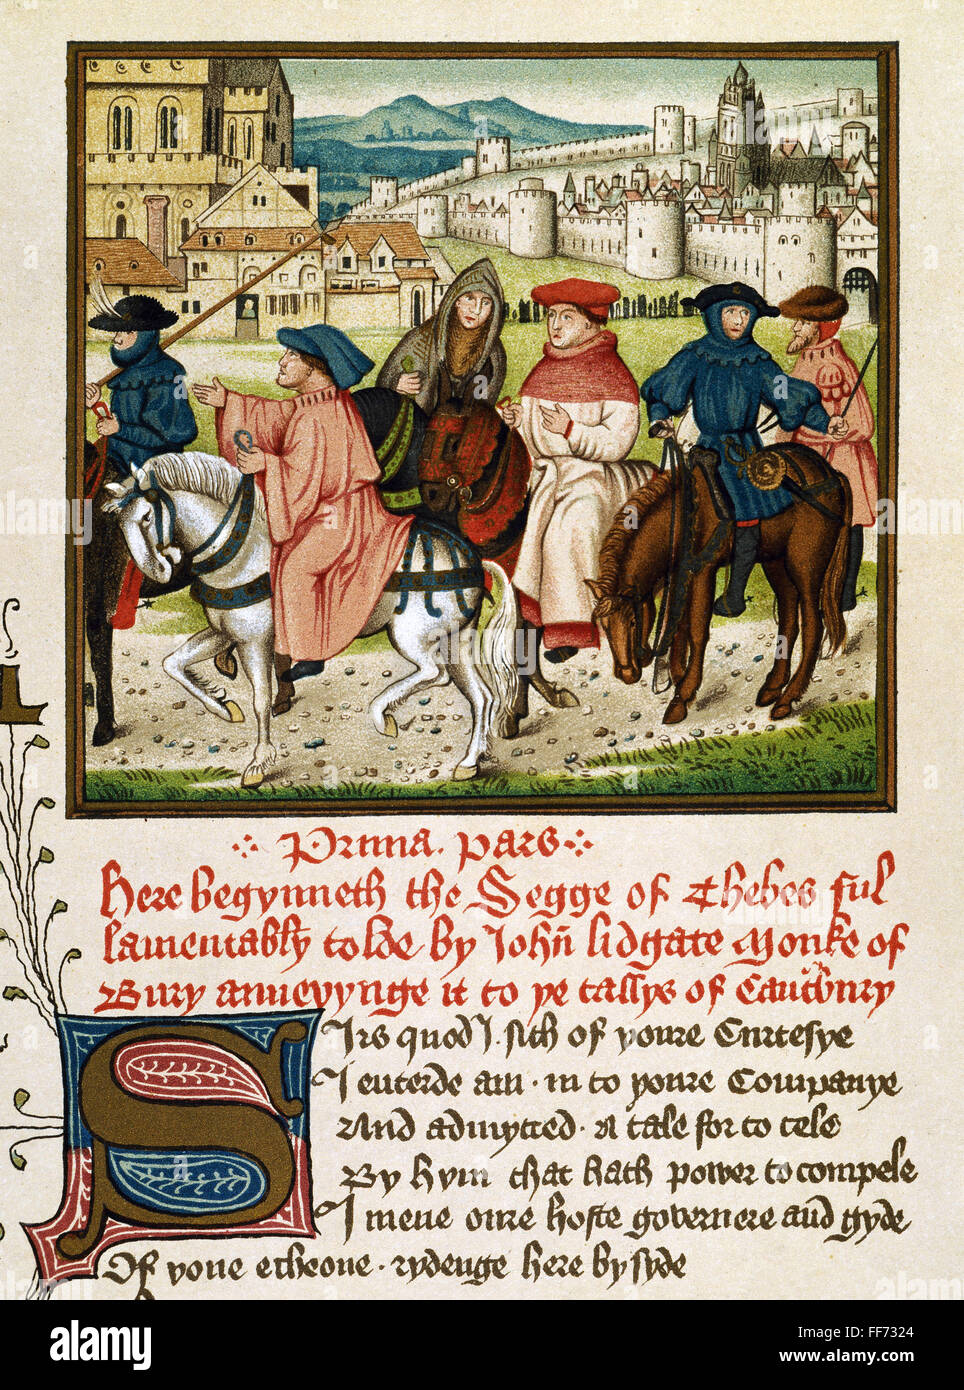 Prima . pars
Here begynneth the Segge of Thebes ful
lamentably tolde by John lidgate Monke of
Bury annexynge it to ye tallys of Cauntbury
Sirs quod I . sith of youre Curtesye
I enterde am . in to youre Companye
And admytted . A tale for to tele
By hym that hath power to compele
I mene oure hoste governere and gyde
Of youe echeone . rydenge here by syde
alamy
alamy stock photo
FF7324
www.alamy.com